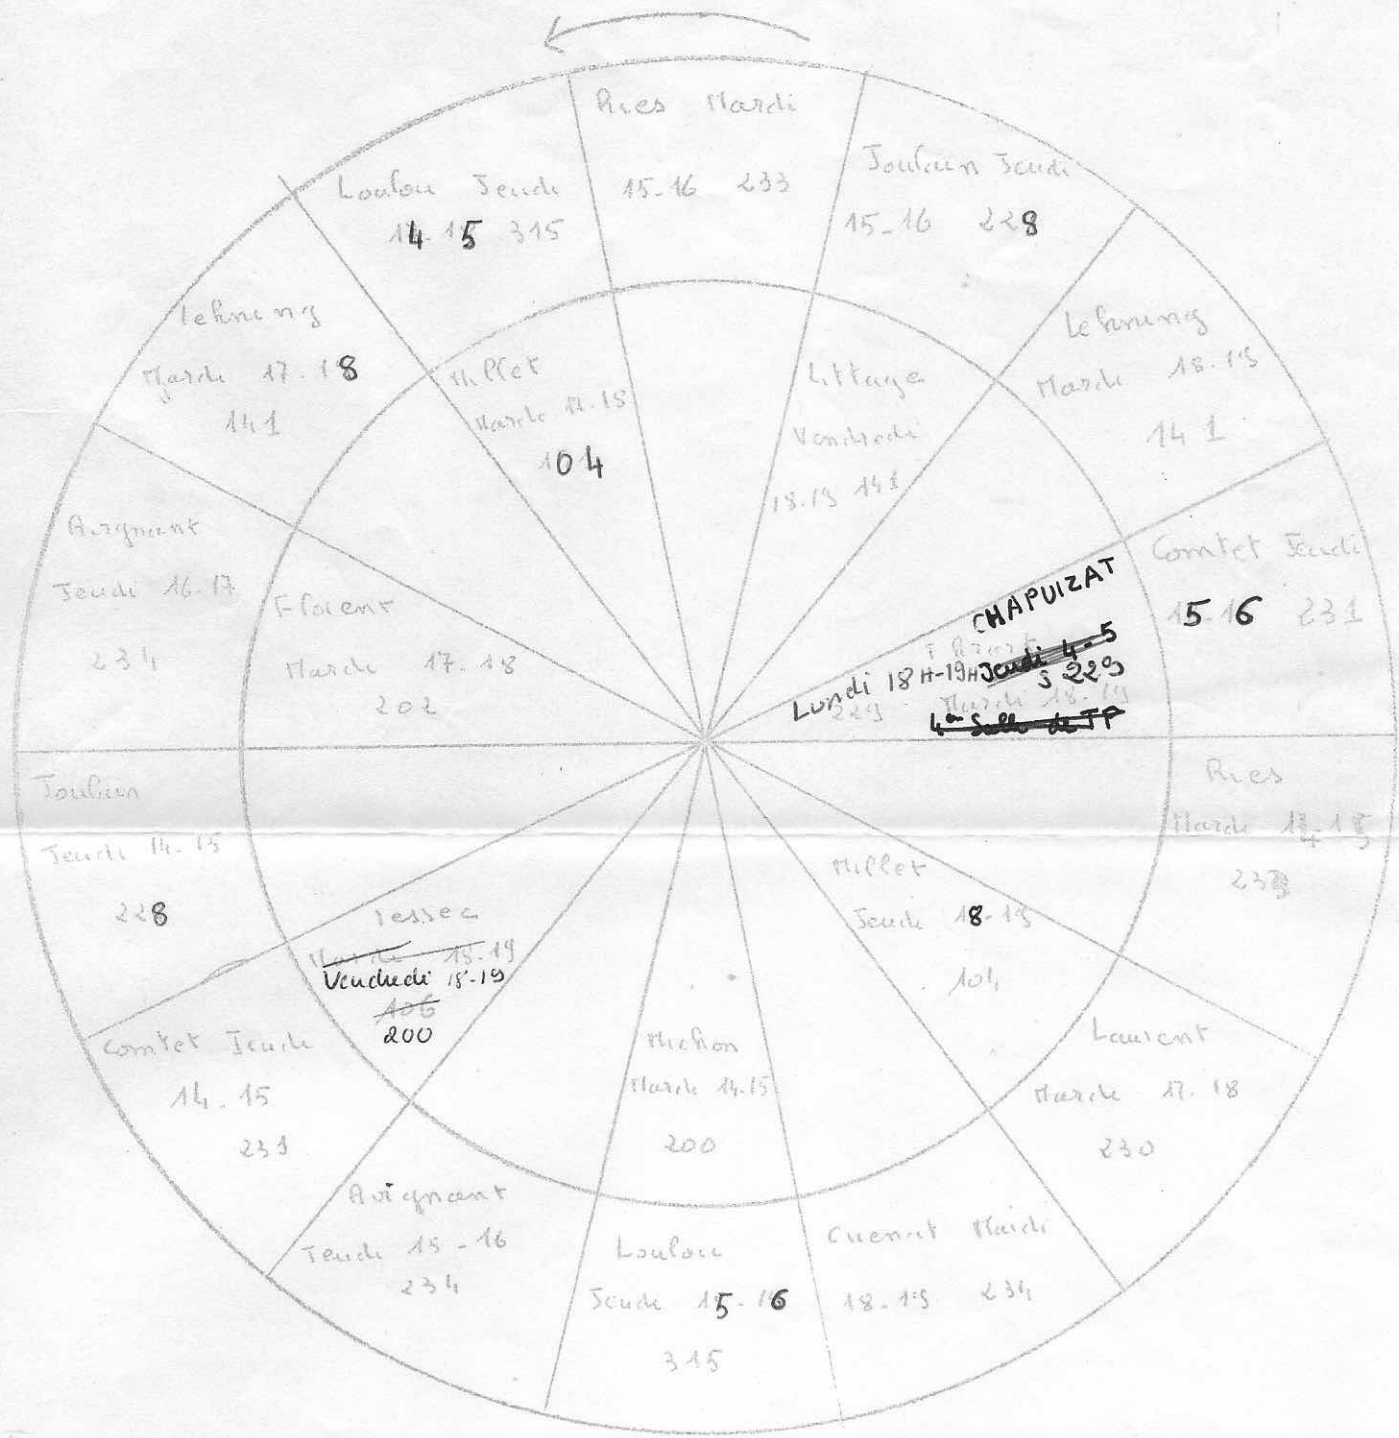 Ries Mardi
15-16 233
Joubun Jeudi
15-16 228
Lehning
Mardi 18-19
141
Comtet Jeudi
15-16 231
Ries
Mardi
Laurent
Mardi 17-18
230
Cuenat Mardi
18-19 234
Loulou
Jeudi 15-16
315
Avignant
Jeudi 15-16
234
Comtet Jeudi
14-15
231
Joubun
Jeudi 14-15
228
Avignant
Jeudi 16-17
234
Lehning
Mardi 17-18
141
Loulou Jeudi
14-15 315
Millet
Mardi 17-18
104
Littaye
Vendredi
18-19 141
CHAPUIZAT
Lundi 18H-19H Jeudi 4-5
S 229
229 Mardi 18-19
4e Salle de TP
Millet
Jeudi 18-19
104
Michon
Mardi 14-15
200
Tessec
Mardi 18-19
Vendredi 18-19
106
200
Florent
Mardi 17-18
202